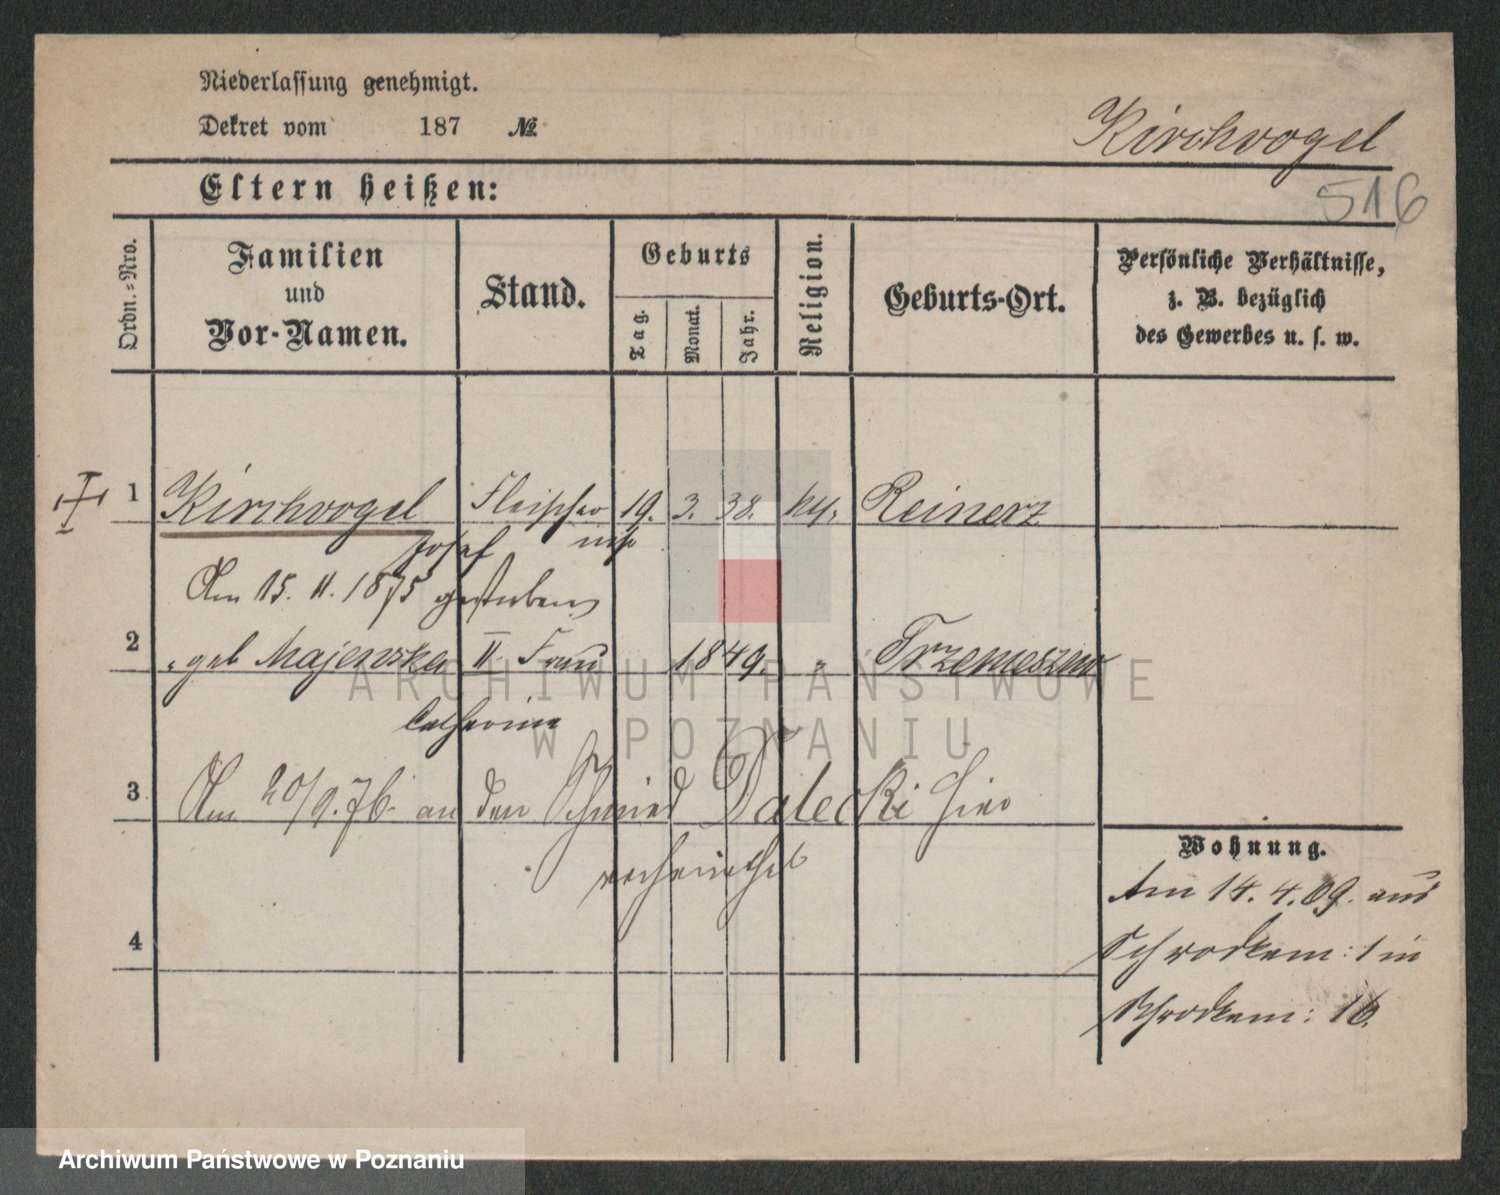 Niederlassung genehmigt.
Dekret vom 187 №
Kirchvogel
Eltern heißen:
516
Ordn.=Nro.
Familien
und
Vor-Namen.
Stand.
Geburts
Tag.
Monat.
Jahr.
Religion.
Geburts-Ort.
Persönliche Verhältnisse,
z. B. bezüglich
des Gewerbes u. s. w.
1 Kirchvogel Fleischer 19. 3. 38. Reinerz
Josef
Am 15. 11. 1875 gestorben
2 geb Majewska II Frau 1849. " Trzemeszno
Catharina
3 Am 20/9. 76. an den Schmied Dalecki hier
verheirathet
4
Wohnung.
Am 14. 4. 69. aus
Schrodkam: 1 in
Schrodkam: 16.
ARCHIWUM PAŃSTWOWE
W POZNANIU
Archiwum Państwowe w Poznaniu